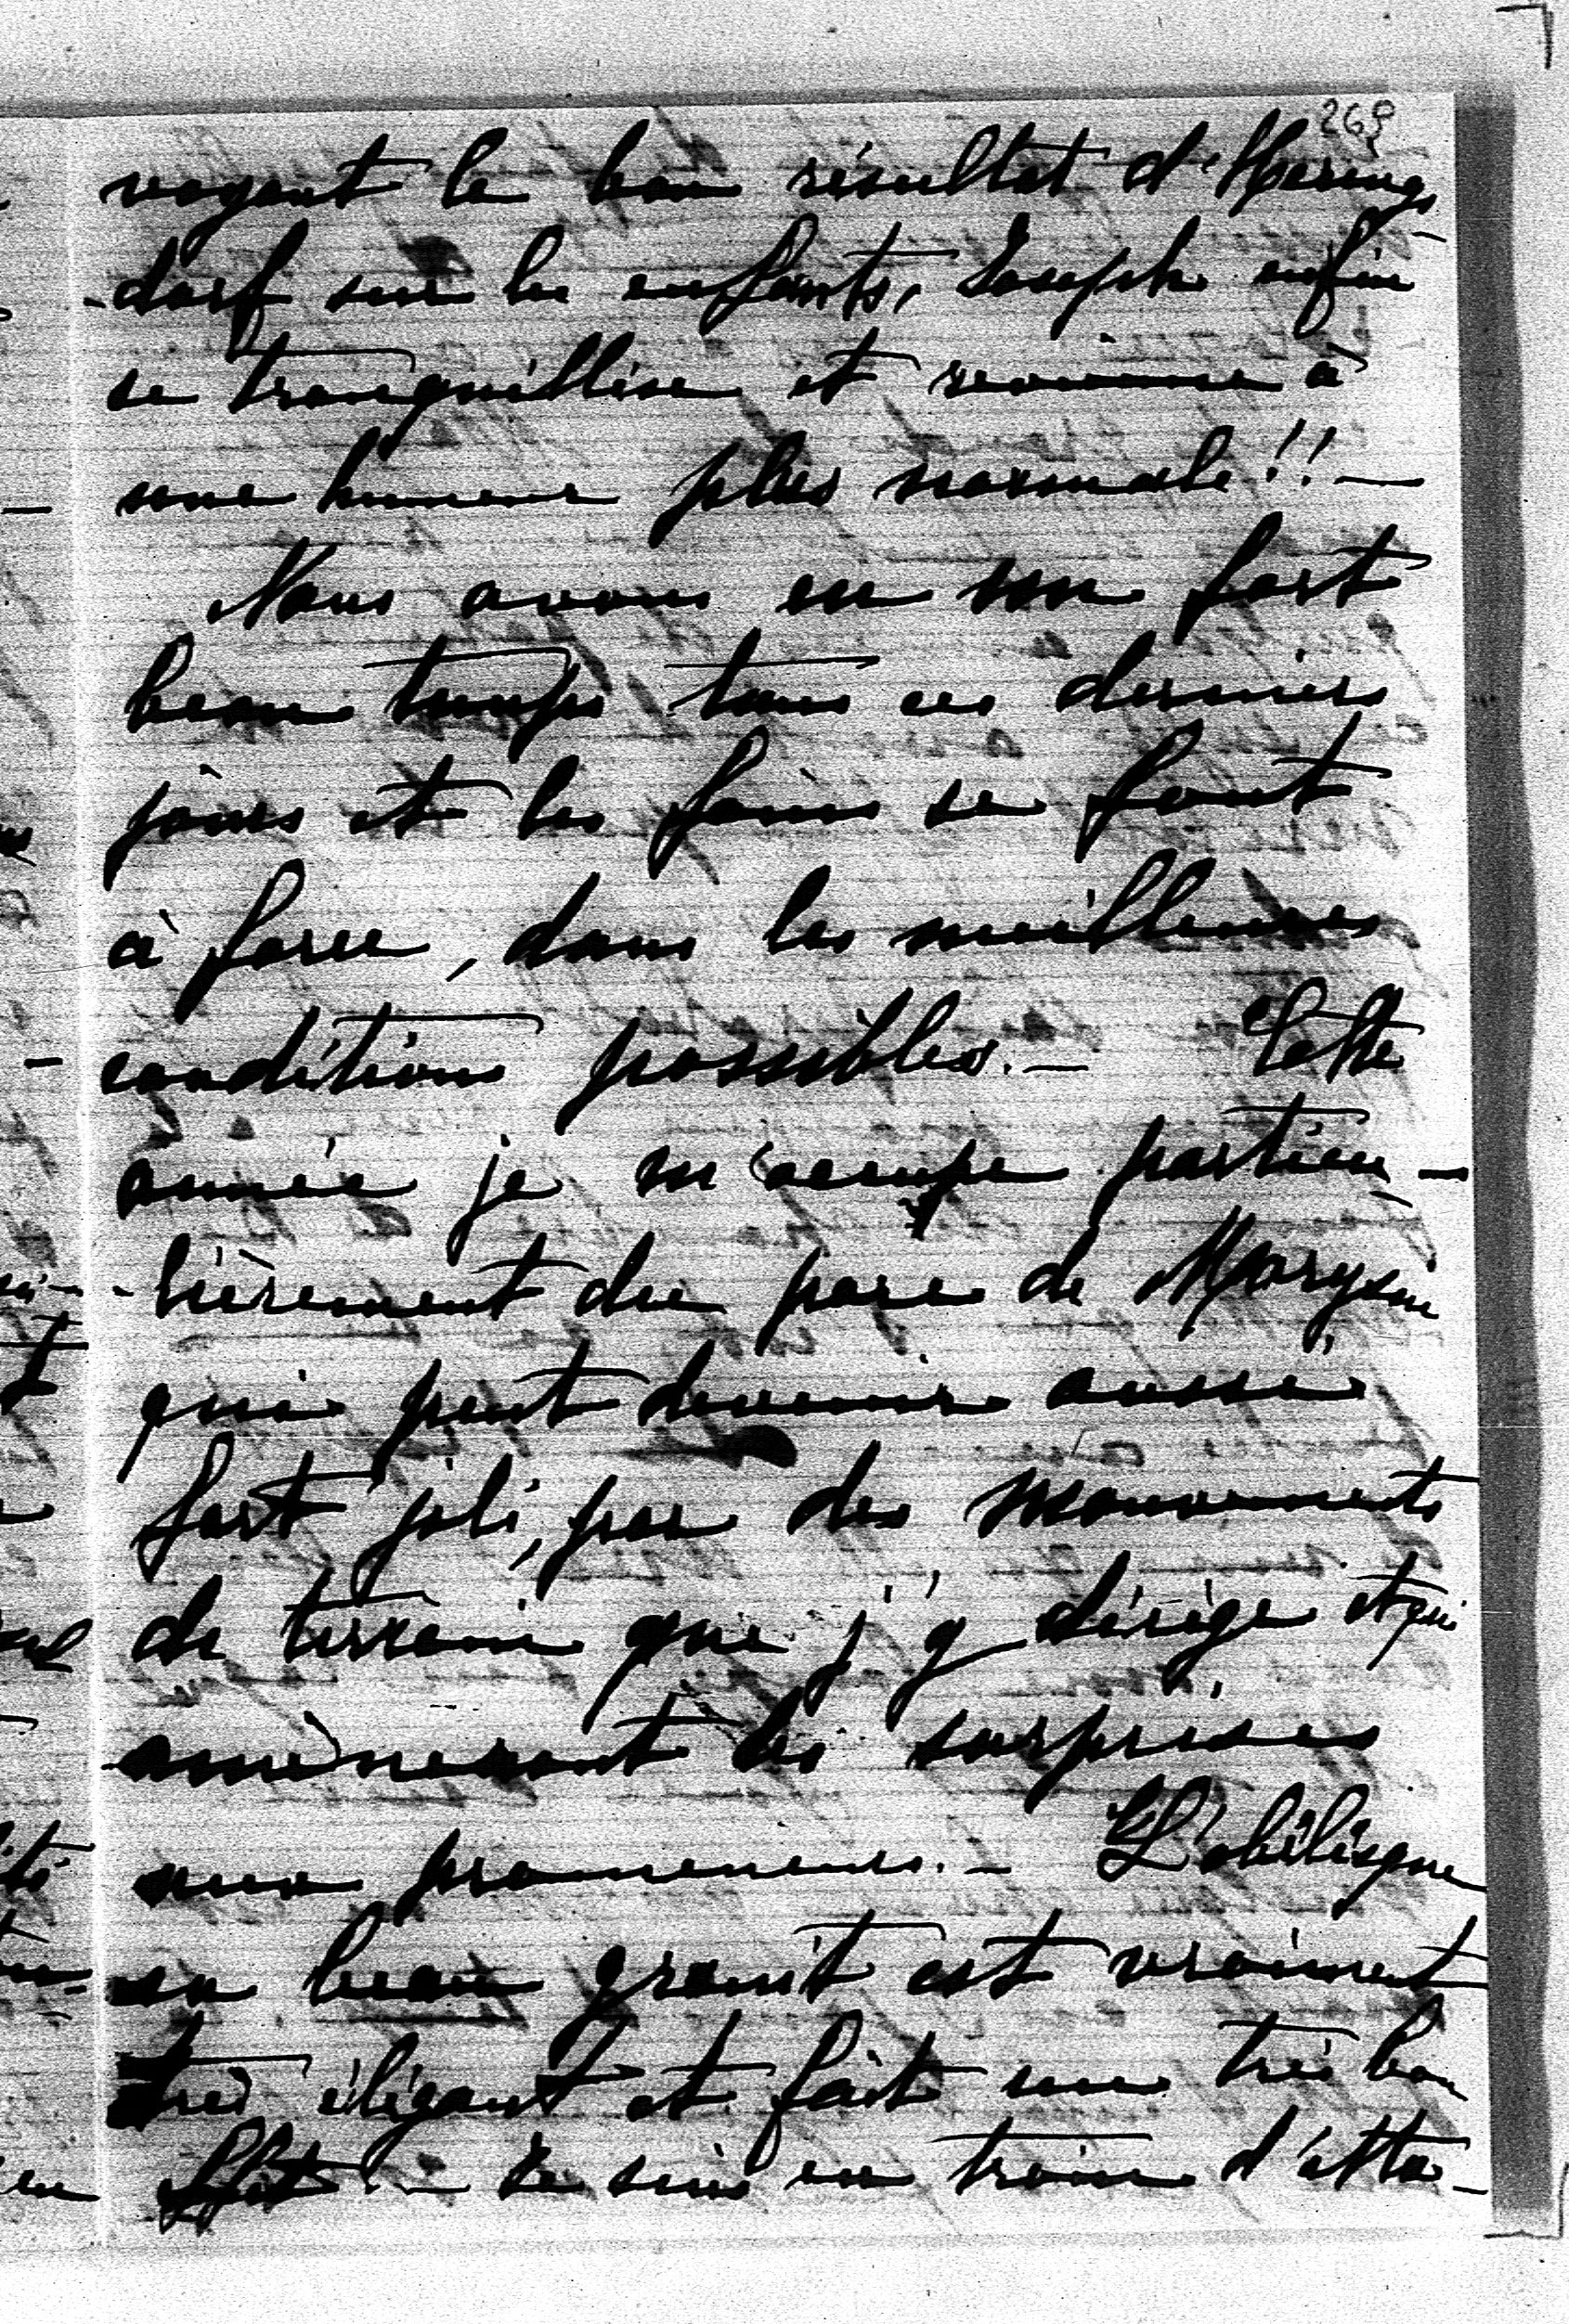 269
voyant le bon résultat d'Hering-
-dorf sur les enfants, Joseph enfin
se tranquillise et revienne à
une humeur plus normale!! —
Nous avons eu un fort
beau temps tous ces derniers
jours et les foins se font
à force, dans les meilleures
conditions possibles. — Cette
année je m'occupe particu-
-lièrement du parc de Marysin
qui peut devenir aussi
fort joli, par des mouvements
de terrain que j'y dirige et qui
amèneront des surprises
aux promeneurs. — L'obélisque
en beau granit est vraiment
très élégant et fait un très bon
effet. — Je suis en train d'atta-